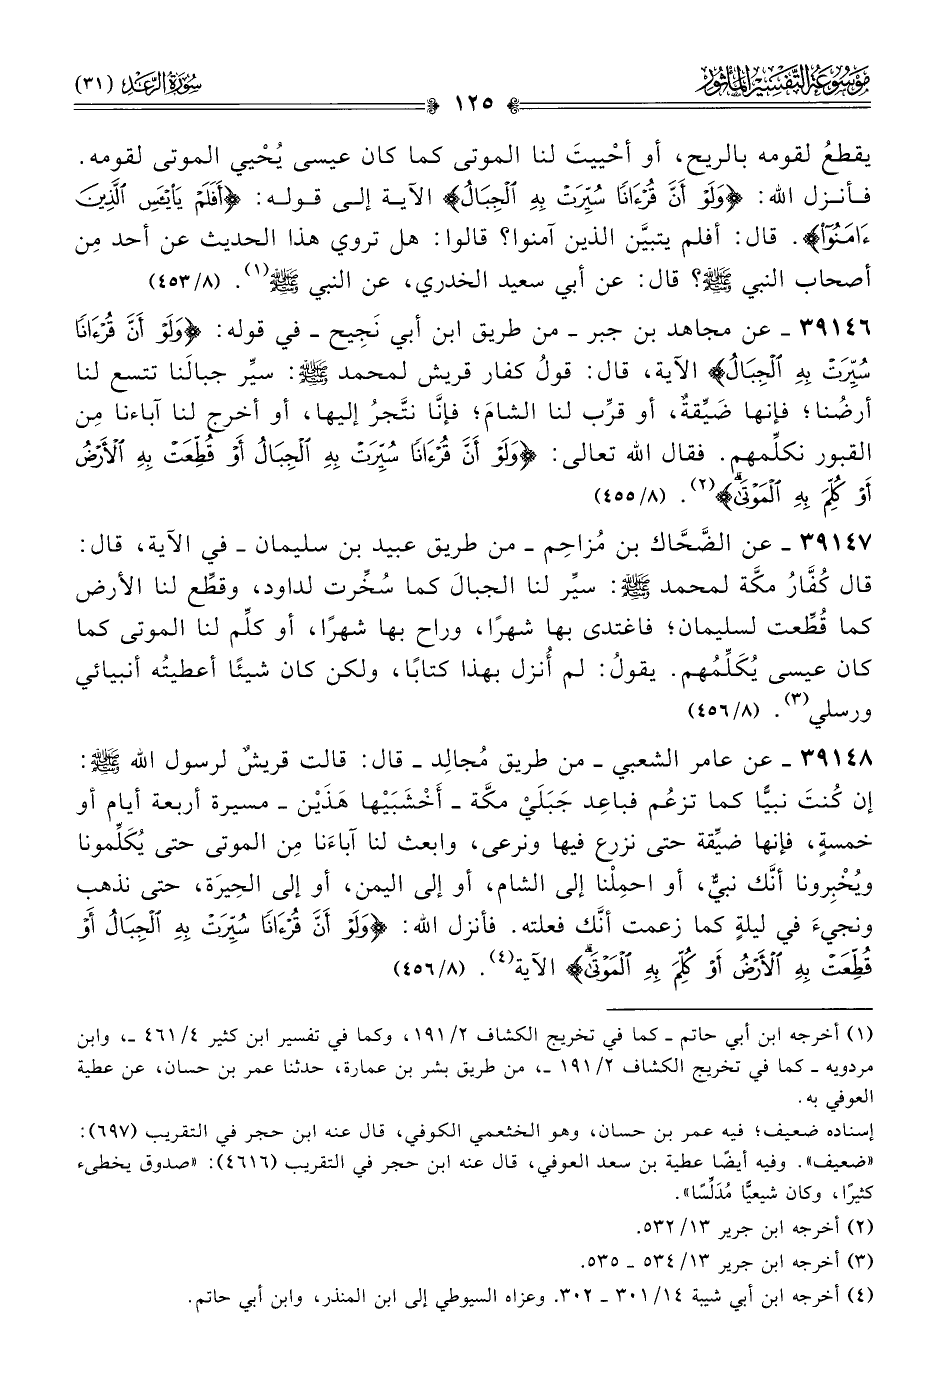 موسوعة التفسير المأثور
سورة الرعد (٣١)
١٢٥
يقطعُ لقومه بالريح، أو أحْييتَ لنا الموتى كما كان عيسى يُحْيي الموتى لقومه.
فأنزل الله: ﴿وَلَوْ أَنَّ قُرْءَانًا سُيِّرَتْ بِهِ ٱلْجِبَالُ﴾ الآية إلى قوله: ﴿أَفَلَمْ يَاْيْـَٔسِ ٱلَّذِينَ
ءَامَنُوٓا۟﴾. قال: أفلم يتبيَّن الذين آمنوا؟ قالوا: هل تروي هذا الحديث عن أحد مِن
أصحاب النبي ﷺ؟ قال: عن أبي سعيد الخدري، عن النبي ﷺ(١). (٤٥٣/٨)
٣٩١٤٦ ـ عن مجاهد بن جبر ـ من طريق ابن أبي نَجِيح ـ في قوله: ﴿وَلَوْ أَنَّ قُرْءَانًا
سُيِّرَتْ بِهِ ٱلْجِبَالُ﴾ الآية، قال: قولُ كفار قريش لمحمد ﷺ: سيِّر جبالَنا تتسع لنا
أرضُنا؛ فإنها ضَيِّقةٌ، أو قرِّب لنا الشامَ؛ فإنَّا نتَّجرُ إليها، أو أخرج لنا آباءنا مِن
القبور نكلِّمهم. فقال الله تعالى: ﴿وَلَوْ أَنَّ قُرْءَانًا سُيِّرَتْ بِهِ ٱلْجِبَالُ أَوْ قُطِّعَتْ بِهِ ٱلْأَرْضُ
أَوْ كُلِّمَ بِهِ ٱلْمَوْتَىٰۗ﴾(٢). (٤٥٥/٨)
٣٩١٤٧ ـ عن الضَّحَّاك بن مُزاحِم ـ من طريق عبيد بن سليمان ـ في الآية، قال:
قال كُفَّارُ مكَّة لمحمد ﷺ: سيِّر لنا الجبالَ كما سُخِّرت لداود، وقطِّع لنا الأرض
كما قُطِّعت لسليمان؛ فاغتدى بها شهرًا، وراح بها شهرًا، أو كلِّم لنا الموتى كما
كان عيسى يُكَلِّمُهم. يقولُ: لم أُنزل بهذا كتابًا، ولكن كان شيئًا أعطيتُه أنبيائي
ورسلي(٣). (٤٥٦/٨)
٣٩١٤٨ ـ عن عامر الشعبي ـ من طريق مُجالِد ـ قال: قالت قريشٌ لرسول الله ﷺ:
إن كُنتَ نبيًّا كما تزعُم فباعِد جَبَلَيْ مكَّة ـ أَخْشَبَيْها هَذَيْن ـ مسيرة أربعة أيام أو
خمسةٍ، فإنها ضيِّقة حتى نزرع فيها ونرعى، وابعث لنا آباءَنا مِن الموتى حتى يُكَلِّمونا
ويُخْبِرونا أنَّك نبيٌّ، أو احمِلْنا إلى الشام، أو إلى اليمن، أو إلى الحِيرَة، حتى نذهب
ونجيءَ في ليلةٍ كما زعمت أنَّك فعلته. فأنزل الله: ﴿وَلَوْ أَنَّ قُرْءَانًا سُيِّرَتْ بِهِ ٱلْجِبَالُ أَوْ
قُطِّعَتْ بِهِ ٱلْأَرْضُ أَوْ كُلِّمَ بِهِ ٱلْمَوْتَىٰۗ﴾ الآية(٤). (٤٥٦/٨)
(١) أخرجه ابن أبي حاتم ـ كما في تخريج الكشاف ١٩١/٢، وكما في تفسير ابن كثير ٤٦١/٤ ـ، وابن
مردويه ـ كما في تخريج الكشاف ١٩١/٢ ـ، من طريق بشر بن عمارة، حدثنا عمر بن حسان، عن عطية
العوفي به.
إسناده ضعيف؛ فيه عمر بن حسان، وهو الخثعمي الكوفي، قال عنه ابن حجر في التقريب (٦٩٧):
«ضعيف». وفيه أيضًا عطية بن سعد العوفي، قال عنه ابن حجر في التقريب (٤٦١٦): «صدوق يخطىء
كثيرًا، وكان شيعيًّا مُدَلِّسًا».
(٢) أخرجه ابن جرير ١٣/ ٥٣٢.
(٣) أخرجه ابن جرير ١٣/ ٥٣٤ ـ ٥٣٥.
(٤) أخرجه ابن أبي شيبة ١٤/ ٣٠١ ـ ٣٠٢. وعزاه السيوطي إلى ابن المنذر، وابن أبي حاتم.